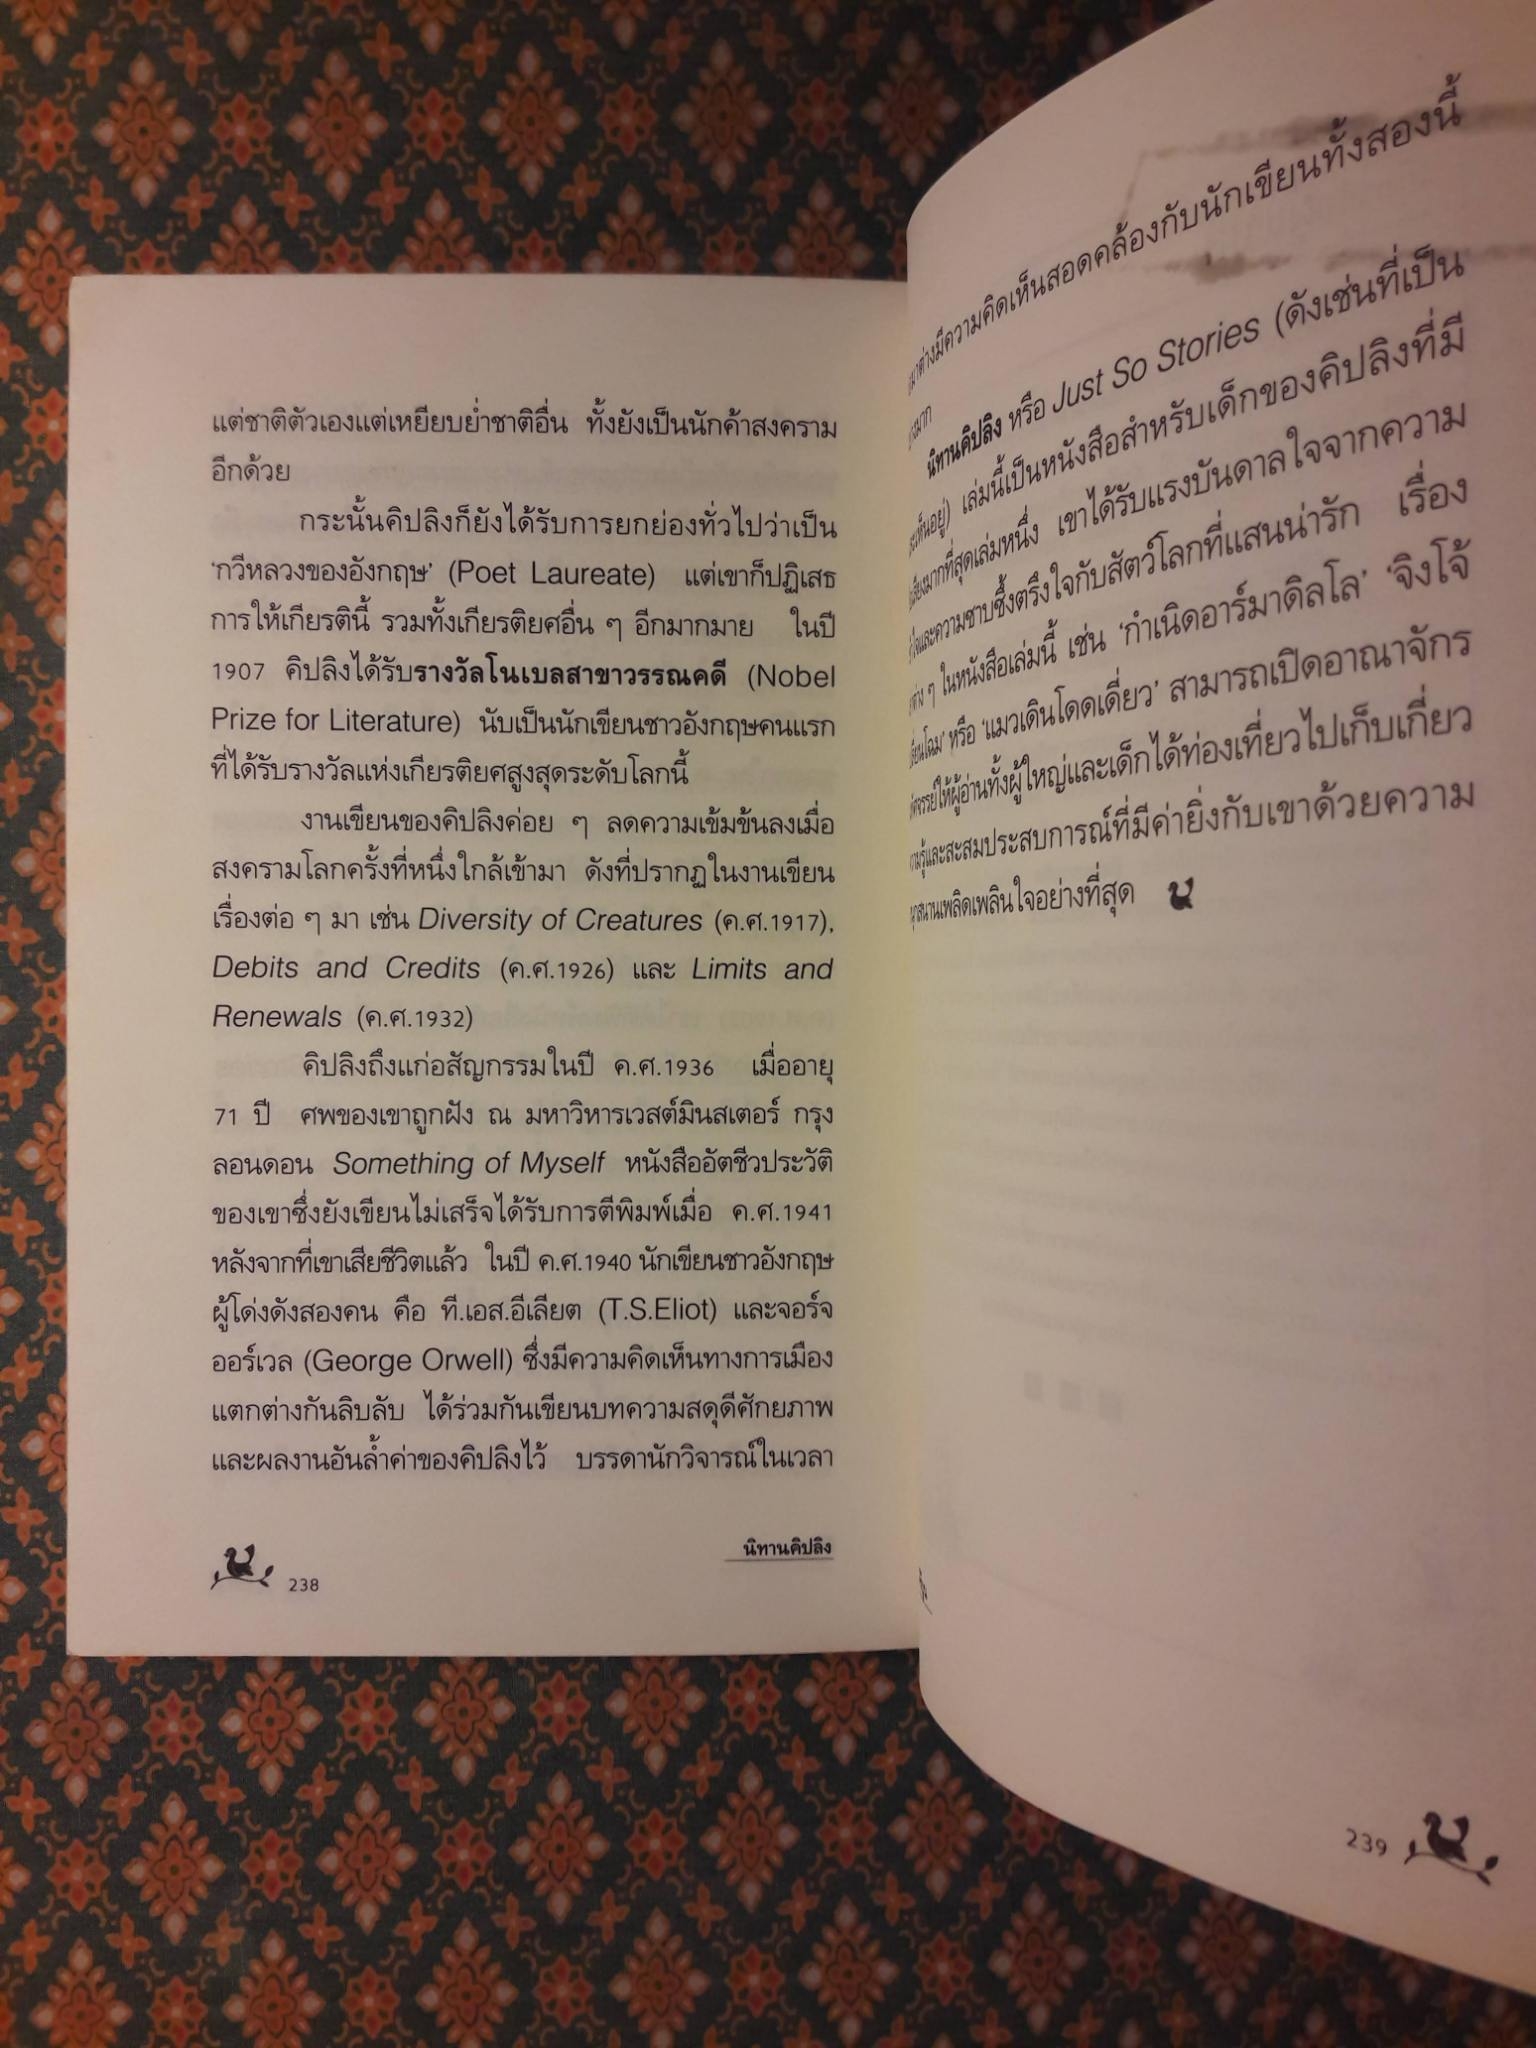 แต่ชาติตัวเองแต่เหยียบย่ำชาติอื่น ทั้งยังเป็นนักค้าสงคราม
อีกด้วย
กระนั้นคิปลิงก็ยังได้รับการยกย่องทั่วไปว่าเป็น
‘กวีหลวงของอังกฤษ’ (Poet Laureate) แต่เขาก็ปฏิเสธ
การให้เกียรตินี้ รวมทั้งเกียรติยศอื่น ๆ อีกมากมาย ในปี
1907 คิปลิงได้รับรางวัลโนเบลสาขาวรรณคดี (Nobel
Prize for Literature) นับเป็นนักเขียนชาวอังกฤษคนแรก
ที่ได้รับรางวัลแห่งเกียรติยศสูงสุดระดับโลกนี้
งานเขียนของคิปลิงค่อย ๆ ลดความเข้มข้นลงเมื่อ
สงครามโลกครั้งที่หนึ่งใกล้เข้ามา ดังที่ปรากฏในงานเขียน
เรื่องต่อ ๆ มา เช่น Diversity of Creatures (ค.ศ.1917),
Debits and Credits (ค.ศ.1926) และ Limits and
Renewals (ค.ศ.1932)
คิปลิงถึงแก่อสัญกรรมในปี ค.ศ.1936 เมื่ออายุ
71 ปี ศพของเขาถูกฝัง ณ มหาวิหารเวสต์มินสเตอร์ กรุง
ลอนดอน Something of Myself หนังสืออัตชีวประวัติ
ของเขาซึ่งยังเขียนไม่เสร็จได้รับการตีพิมพ์เมื่อ ค.ศ.1941
หลังจากที่เขาเสียชีวิตแล้ว ในปี ค.ศ.1940 นักเขียนชาวอังกฤษ
ผู้โด่งดังสองคน คือ ที.เอส.อีเลียต (T.S.Eliot) และจอร์จ
ออร์เวล (George Orwell) ซึ่งมีความคิดเห็นทางการเมือง
แตกต่างกันลิบลับ ได้ร่วมกันเขียนบทความสดุดีศักยภาพ
และผลงานอันล้ำค่าของคิปลิงไว้ บรรดานักวิจารณ์ในเวลา
นิทานคิปลิง
238
มาต่างมีความคิดเห็นสอดคล้องกับนักเขียนทั้งสองนี้
มาก
นิทานคิปลิง หรือ Just So Stories (ดังเช่นที่เป็น
เห็นอยู่) เล่มนี้เป็นหนังสือสำหรับเด็กของคิปลิงที่มี
เสียงมากที่สุดเล่มหนึ่ง เขาได้รับแรงบันดาลใจจากความ
และความซาบซึ้งตรึงใจกับสัตว์โลกที่แสนน่ารัก เรื่อง
ต่าง ๆ ในหนังสือเล่มนี้ เช่น ‘กำเนิดอาร์มาดิลโล’ ‘จิงโจ้
โฉม’ หรือ ‘แมวเดินโดดเดี่ยว’ สามารถเปิดอาณาจักร
ให้ผู้อ่านทั้งผู้ใหญ่และเด็กได้ท่องเที่ยวไปเก็บเกี่ยว
รู้และสะสมประสบการณ์ที่มีค่ายิ่งกับเขาด้วยความ
สนานเพลิดเพลินใจอย่างที่สุด
239